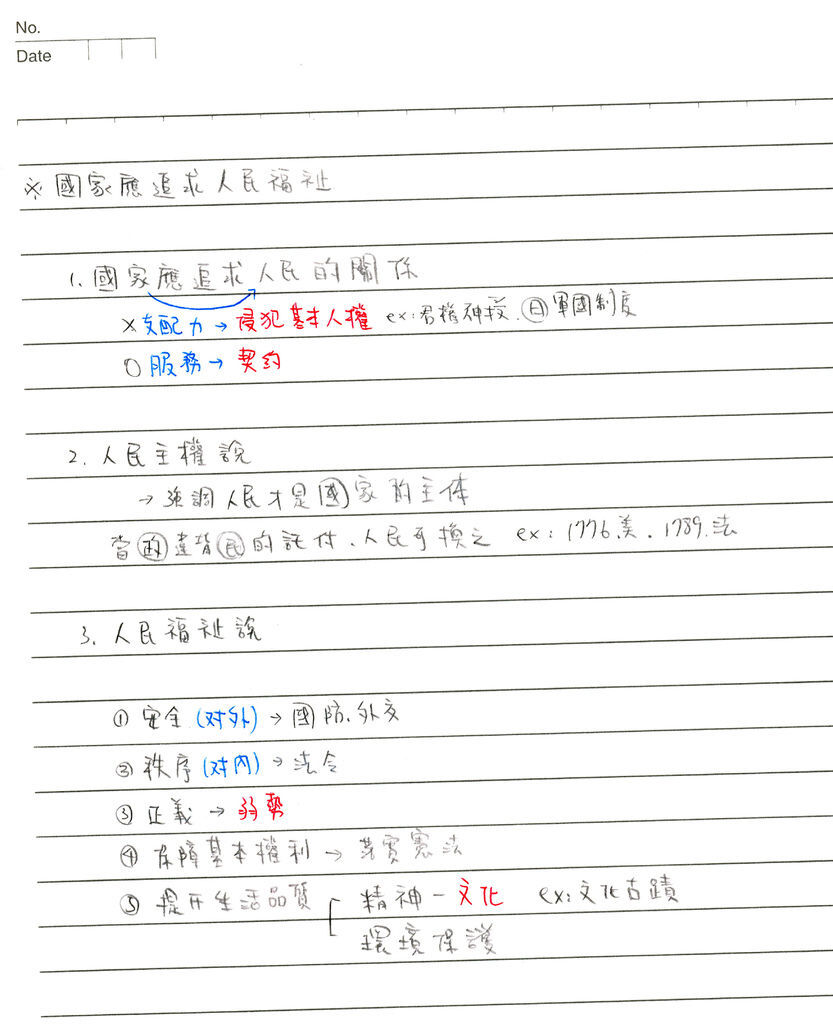 No.
Date
※國家應追求人民福祉
1.國家應追求人民的關係
×支配力→侵犯基本人權 ex:君權神授、日軍國制度
○服務→契約
2.人民主權說
→強調人民才是國家的主体
當政違背民的託付、人民可換之 ex:1776.美、1789.法
3.人民福祉說
①安全(对外)→國防、外交
②秩序(对內)→法令
③正義→弱勢
④保障基本權利→落實憲法
⑤提升生活品質 精神-文化 ex:文化古蹟
環境保護